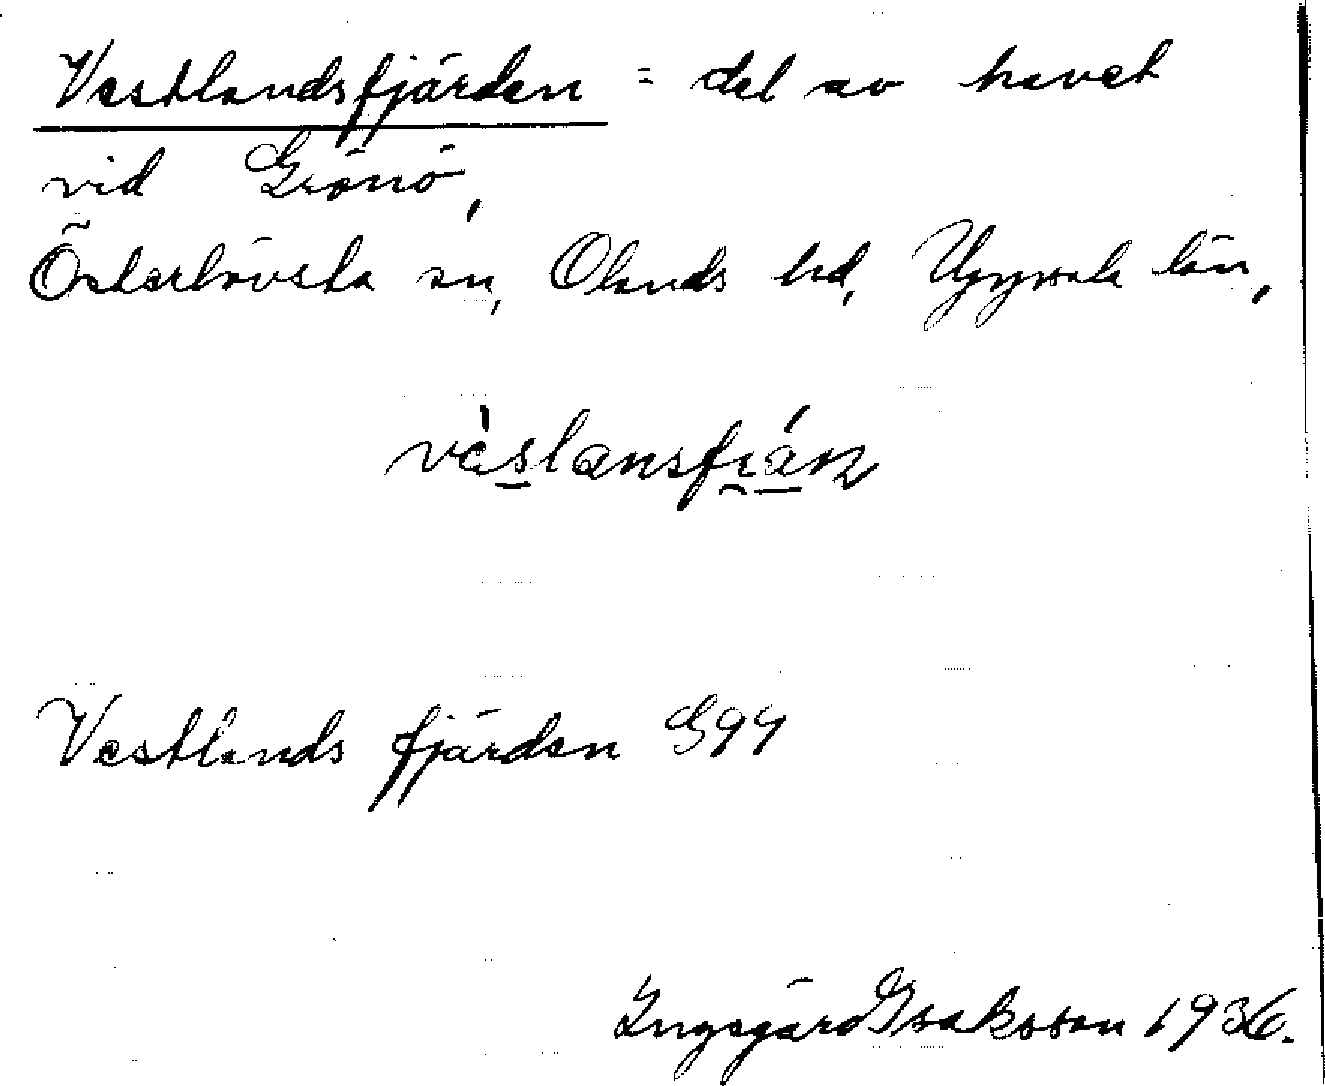 Vestlandsfjärden = del av havet
vid Grönö,
Österlövsta sn, Olands hd, Uppsala län,
vèslansfi̯án
Vestlands fjärden G94
Ingegärd Isaksson 1936.